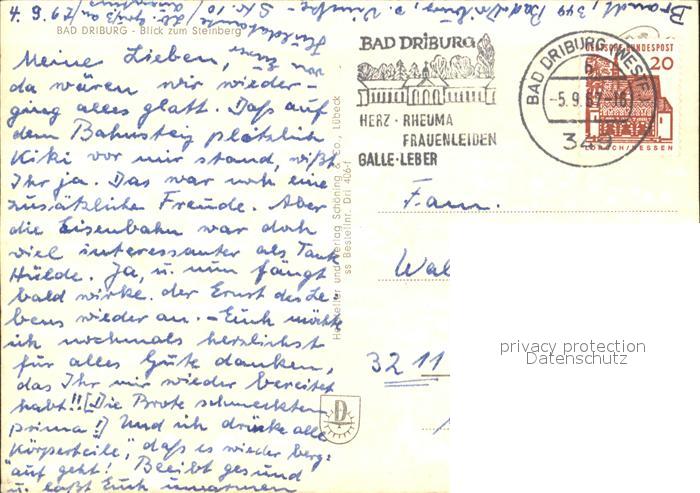 4. 9. 67/
Brandt, 349 Bad Driburg,
BAD DRIBURG - Blick zum Steinberg
Meine Lieben,
da wären wir wieder –
ging alles glatt. Daß auf
dem Bahnsteig plötzlich
Kiki vor mir stand, wißt
Ihr ja. Das war noch eine
zusätzliche Freude. Aber
die Eisenbahn war doch
viel interessanter als Tante
Hülde. Ja, u. nun fängt
bald wirkl. der Ernst des Le-
bens wieder an. – Euch möchte
ich nochmals herzlichst
für alles Gute danken,
das Ihr mir wieder bereitet
habt!! [Die Brote schmeckten
prima!] Und ich drücke alle
„Körperteile", daß es wieder berg-
auf geht! Bleibt gesund
u. laßt Euch umarmen
Hersteller und Verlag Schöning & Co., Lübeck
ss Bestellnr. Dri 406-f
D
BAD DRIBURG
HERZ · RHEUMA
FRAUENLEIDEN
GALLE · LEBER
BAD DRIBURG (WESTF)
-5.9.67-16
349
DEUTSCHE BUNDESPOST
20
LORSCH/HESSEN
Fam.
Wal
3211
privacy protection
Datenschutz